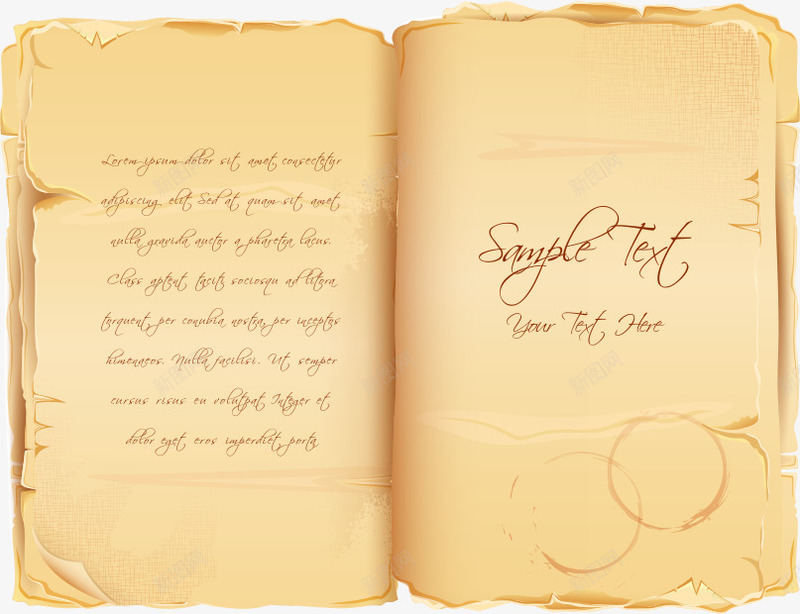 Lorem ipsum dolor sit amet consectetur
adipiscing elit Sed at quam sit amet
nulla gravida auctor a pharetra lacus.
Class aptent tacit sociosqu ad litora
torquent per conubia nostra, per inceptos
himenaeos. Nulla facilisi. Ut semper
cursus risus eu volutpat Integer et
dolor eget eros imperdiet porta
Sample Text
Your Text Here